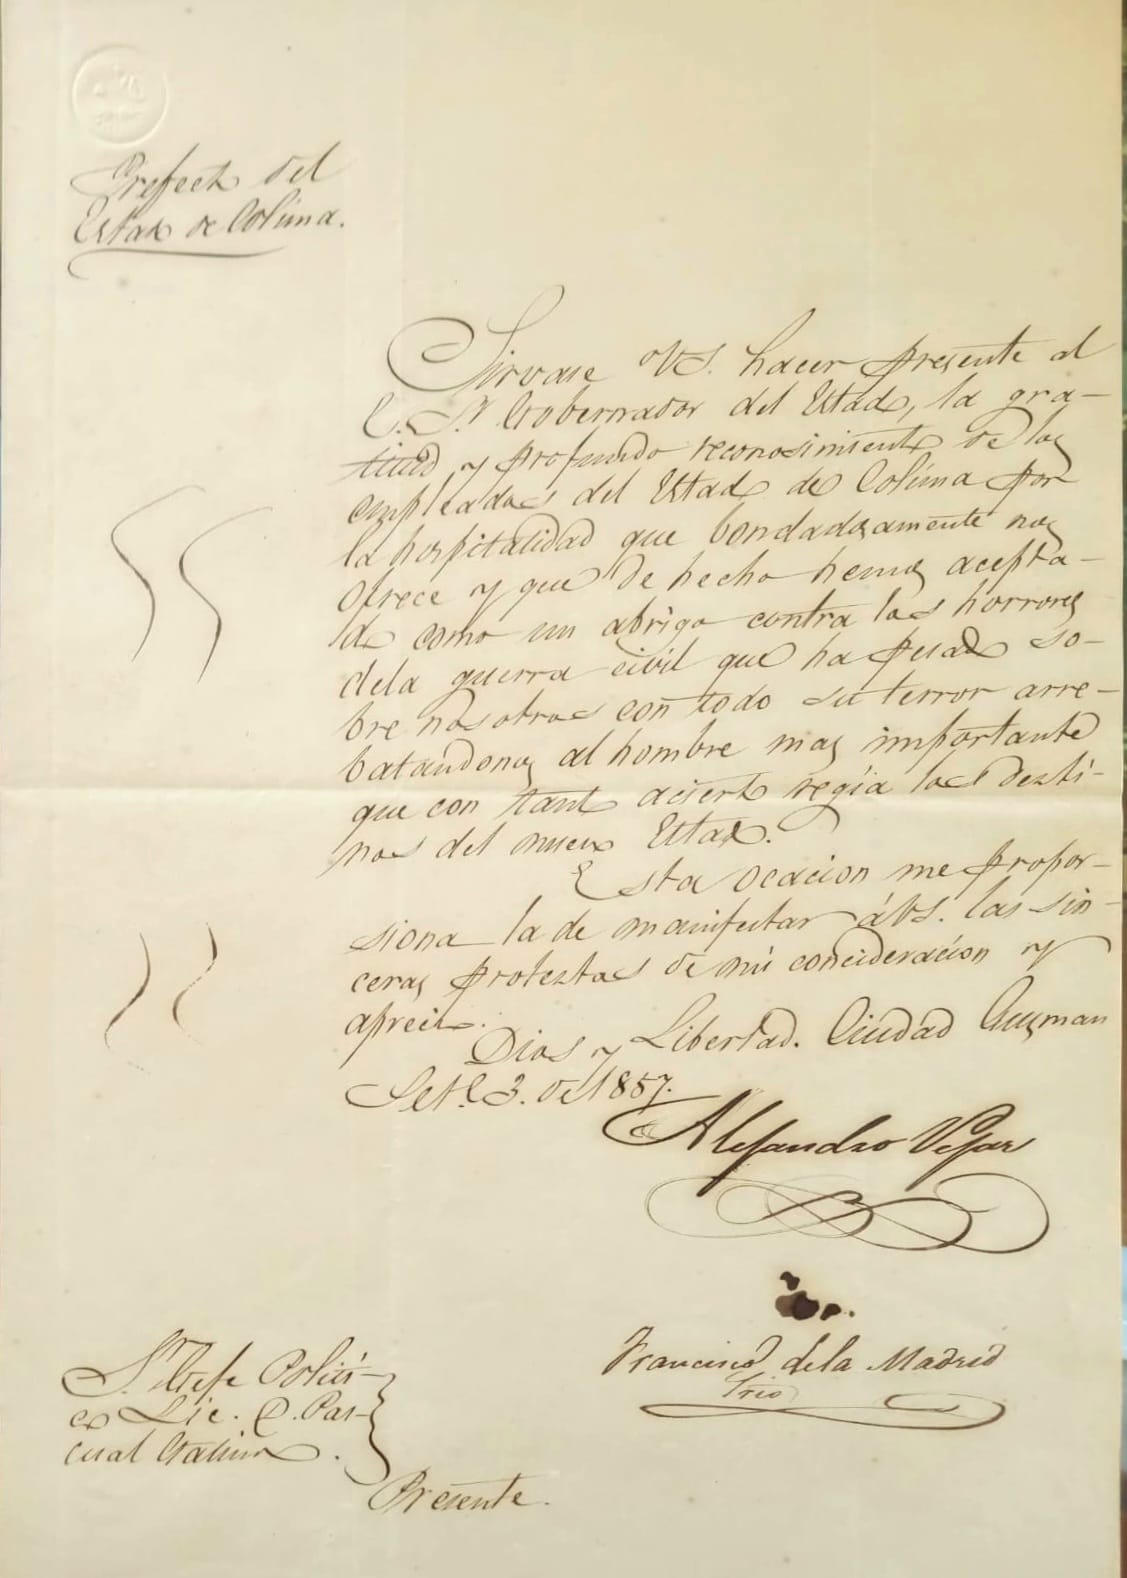 Prefecto del
Estado de Colima.
Sirvase VS. hacer presente al
E. Sr. Gobernador del Estado, la gra-
titud y profundo reconosimiento de los
empleados del Estado de Colima por
la hospitalidad que bondadosamente nos
ofrece y que de hecho hemos acepta-
do como un abrigo contra los horrores
dela guerra civil que ha pesado so-
bre nosotros con todo su terror arre-
batandonos al hombre mas importante
que con tanto acierto regia los desti-
nos del nuevo Estado.
Esta ocacion me propor-
siona la de manifestar á VS. las sin-
ceras protextas de mi concideración y
aprecio.
Dios y Libertad. Ciudad Guzman
Set.e 3. de 1857.
Alejandro Vejar
Francisco dela Madrid
Srio
Sr. Gefe Politi-
co Lic. D. Pas-
cual
Presente.